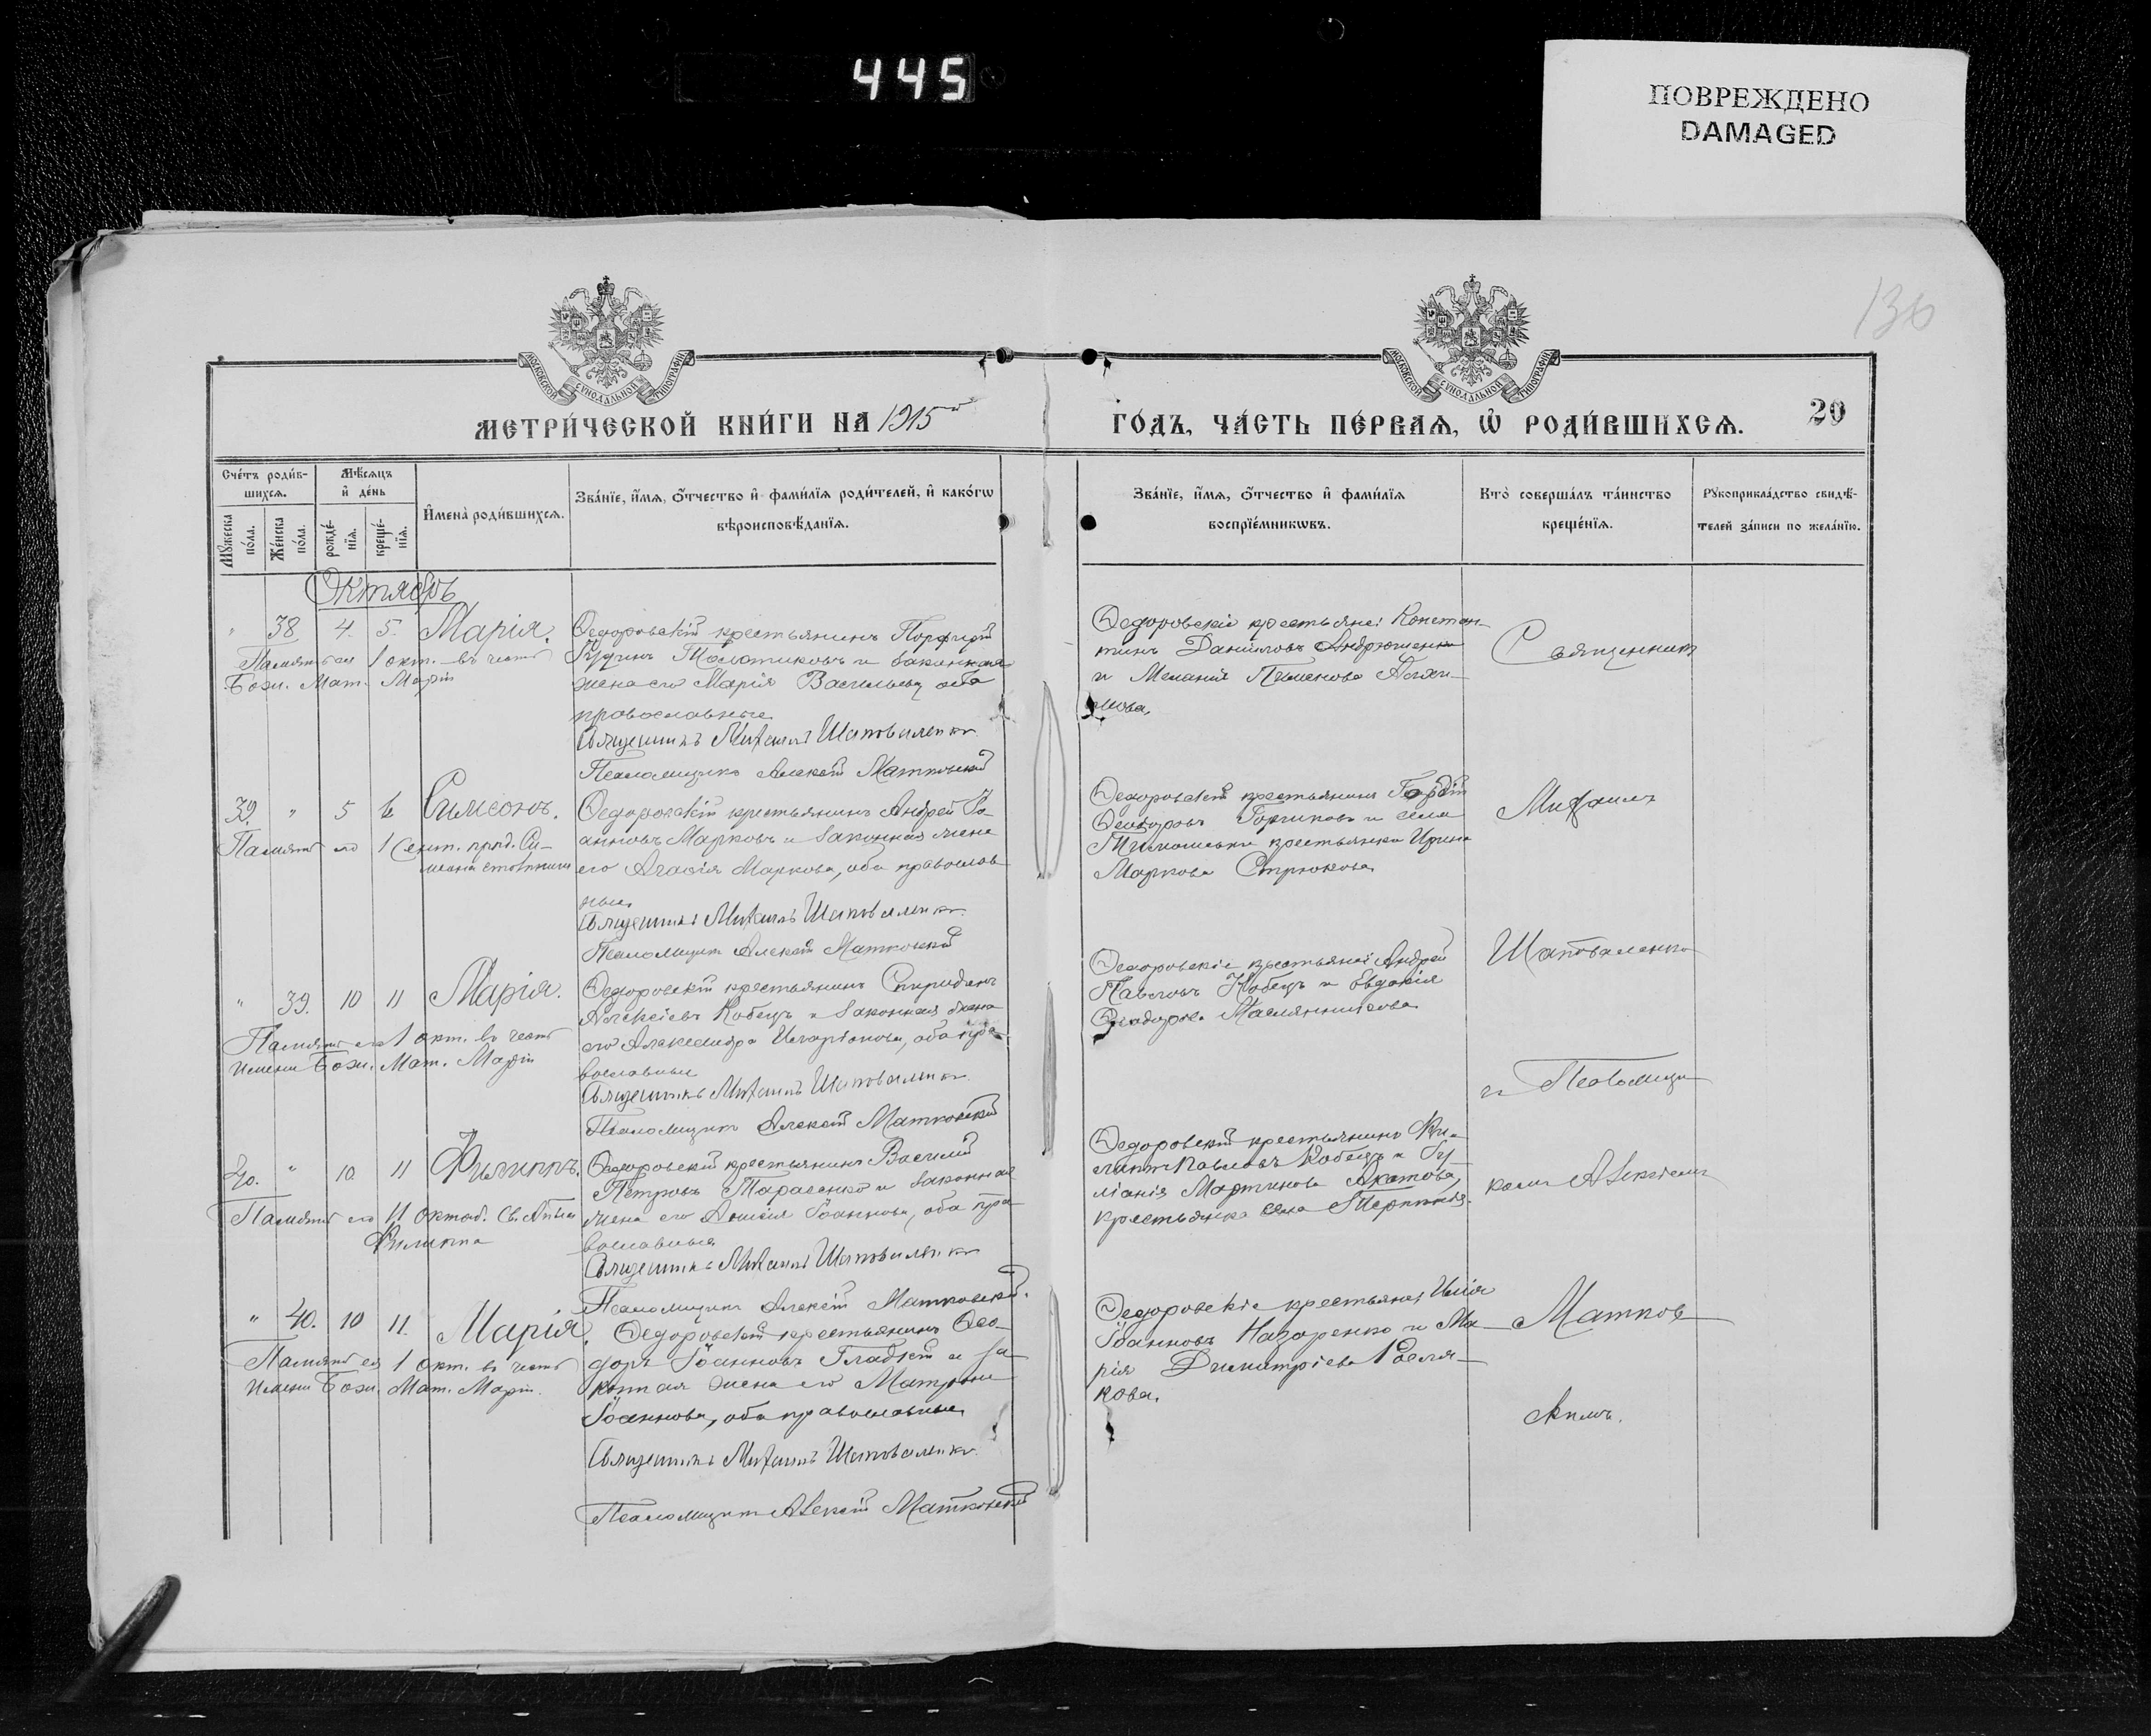 445
ПОВРЕЖДЕНО
DAMAGED
136
МОСКОВСКОЙ СУНОДАЛЬНОЙ ТИПОГРАФІИ
МОСКОВСКОЙ СУНОДАЛЬНОЙ ТИПОГРАФІИ
МЕТРИ́ЧЕСКОЙ КНИ́ГИ НА 1915й
ГО́ДЪ, ЧА́СТЬ ПЕ́РВАѦ, Ѡ҆ РОДИ́ВШИХСѦ.
29
Сче́тъ роди́в-
шихсѧ.
Мѣ́сѧцъ
и҆ де́нь
Мꙋ́жеска по́ла.
Же́нска по́ла.
рожде́-
нїѧ.
креще́-
нїѧ.
И҆мена̀ роди́вшихсѧ.
Зва́нїе, и҆́мѧ, ѻ҆́тчество и҆ фами́лїѧ роди́телей, и҆ како́гѡ
вѣроисповѣ́данїѧ.
Зва́нїе, и҆́мѧ, ѻ҆́тчество и҆ фами́лїѧ
воспрїе́мникѡвъ.
Кто̀ соверша́лъ та́инство
креще́нїѧ.
Рꙋкоприкла́дство свидѣ́-
телей за́писи по жела́нїю.
Октябрь
" 38 4. 5. Марія.
Память ея 1 окт. въ честь
Бож. Мат. Маріи
Ѳедоровскій крестьянинъ Порфирій
Молотиковъ и законная
жена его Марія Васильева, оба
православные.
Священникъ Михаилъ Шаповаленко.
Псаломщикъ Алексій Матковскій
Ѳедоровскіе крестьяне: Констан-
тинъ Даніиловъ Андрюшенко
и Меланія Пименова
Священник
39. " 5 6 Симеонъ.
Память его 1 Сент. прпд. Си-
меона столпника
Ѳедоровскій крестьянинъ Андрей Іо-
анновъ Марковъ и законная жена
его Агафія Маркова, оба православ
ные.
Священникъ Михаилъ Шаповаленко.
Псаломщикъ Алексій Матковскій
Ѳедоровскій крестьянинъ Гордій
Ѳеодоровъ и села
крестьянка Ирина
Маркова Стрюкова.
Михаилъ
" 39. 10 11 Марія.
Память ея 1 окт. въ честь
имени Бож. Мат. Маріи
Ѳедоровскій крестьянинъ Спиридонъ
Алексіевъ Кобецъ и законная жена
его Александра Иларіонова, оба пра-
вославные
Священникъ Михаилъ Шаповаленко.
Псаломщикъ Алексій Матковскій
Ѳедоровскіе крестьяне: Андрей
Павловъ Кобецъ и Евдокія
Ѳеодорова Маслянникова
Шаповаленко
и Псаломщи-
40. " 10. 11 Филиппъ.
Память его 11 Октяб. Св. Апост
Филиппа
Ѳедоровскій крестьянинъ Василій
Петровъ Тарасенко и законная
жена его Анисія Іоаннова, оба пра
вославные
Священникъ Михаилъ Шаповаленко
Псаломщикъ Алексій Матковскій.
Ѳедоровскій крестьянинъ
Павловъ Кобецъ и Іу
ліанія Мартинова Акатова,
крестьянка села
комъ Алексіемъ
" 40. 10 11. Марія.
Память ея 1 окт. въ честь
имени Бож. Мат. Маріи.
Ѳедоровскій крестьянинъ Ѳео-
доръ Іоанновъ Гладкій и за
конная жена его Матрона
Іоаннова, оба православные
Священникъ Михаилъ Шаповаленко.
Псаломщикъ Алексій Матковскій
Ѳедоровскіе крестьяне: Илія
Іоанновъ Назаренко и Ма
рія Димитріева
кова.
Матков
скимъ.